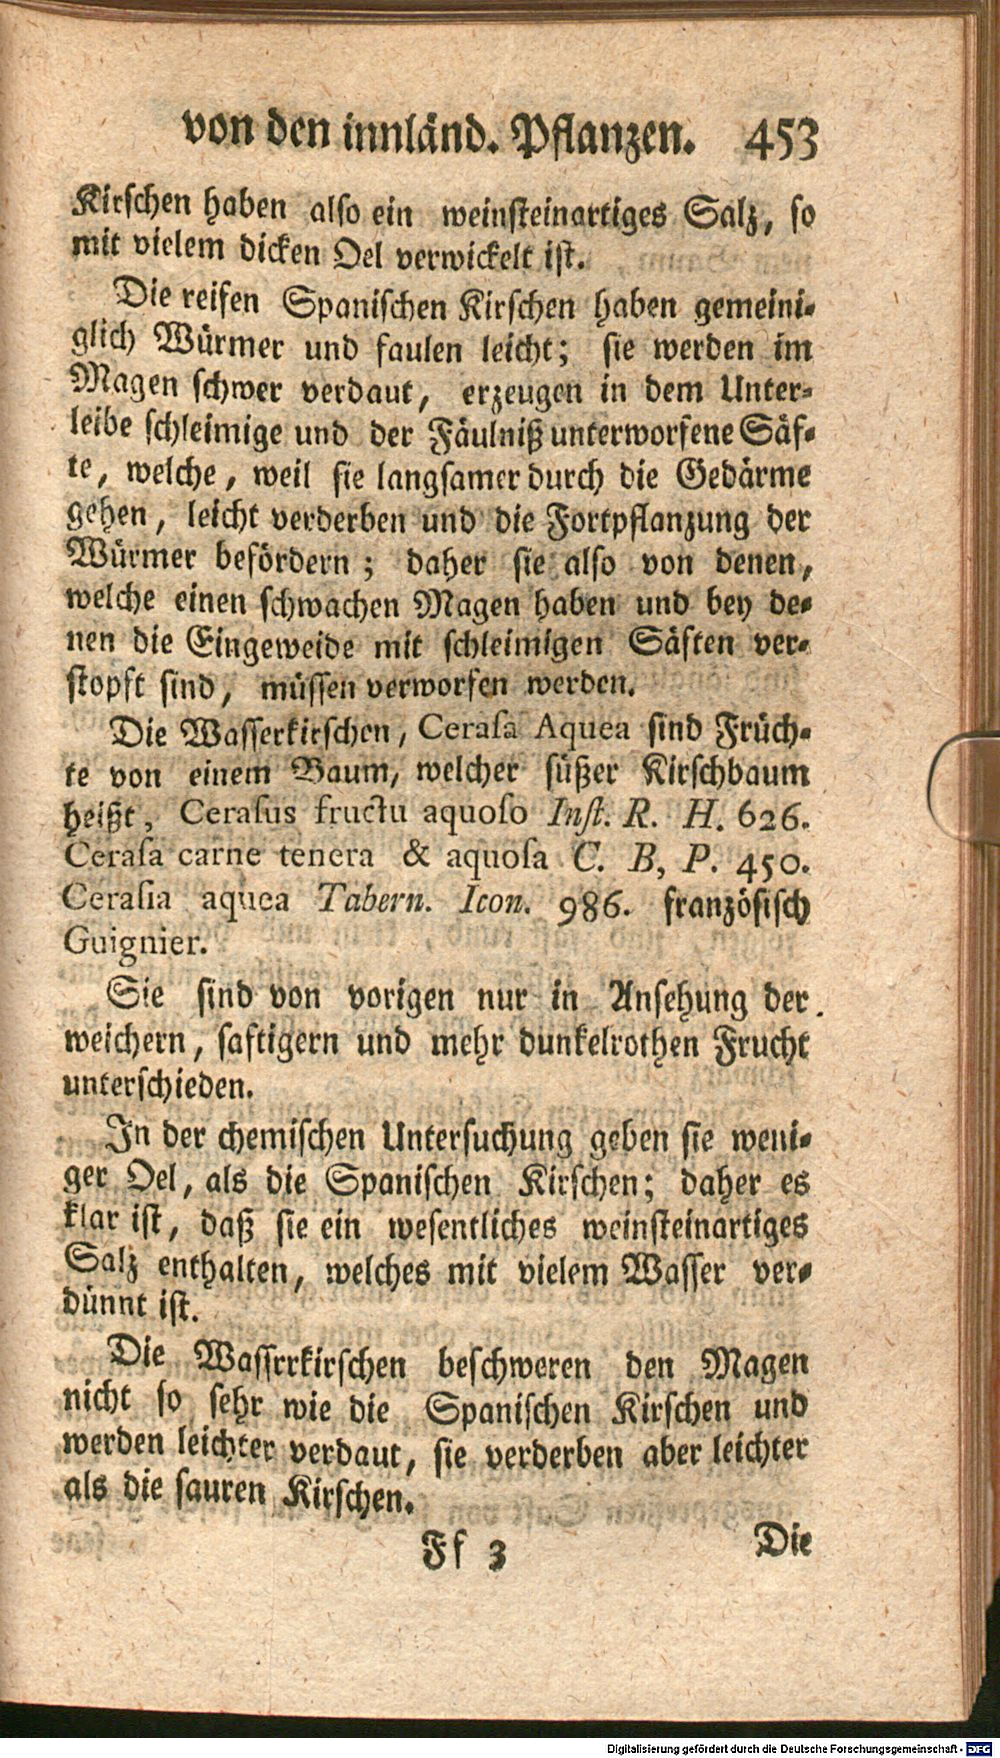 von den innländ. Pflanzen. 453
Kirschen haben also ein weinsteinartiges Salz, so
mit vielem dicken Oel verwickelt ist.
Die reifen Spanischen Kirschen haben gemeini-
glich Würmer und faulen leicht; sie werden im
Magen schwer verdaut, erzeugen in dem Unter-
leibe schleimige und der Fäulniß unterworfene Säf-
te, welche, weil sie langsamer durch die Gedärme
gehen, leicht verderben und die Fortpflanzung der
Würmer befördern; daher sie also von denen,
welche einen schwachen Magen haben und bey de-
nen die Eingeweide mit schleimigen Säften ver-
stopft sind, müssen verworfen werden.
Die Wasserkirschen, Cerasa Aquea sind Früch-
te von einem Baum, welcher süßer Kirschbaum
heißt, Cerasus fructu aquoso Inst. R. H. 626.
Cerasa carne tenera & aquosa C. B, P. 450.
Cerasia aquea Tabern. Icon. 986. französisch
Guignier.
Sie sind von vorigen nur in Ansehung der
weichern, saftigern und mehr dunkelrothen Frucht
unterschieden.
In der chemischen Untersuchung geben sie weni-
ger Oel, als die Spanischen Kirschen; daher es
klar ist, daß sie ein wesentliches weinsteinartiges
Salz enthalten, welches mit vielem Wasser ver-
dünnt ist.
Die Wasserkirschen beschweren den Magen
nicht so sehr wie die Spanischen Kirschen und
werden leichter verdaut, sie verderben aber leichter
als die sauren Kirschen.
Ff 3 Die
Digitalisierung gefördert durch die Deutsche Forschungsgemeinschaft - DFG